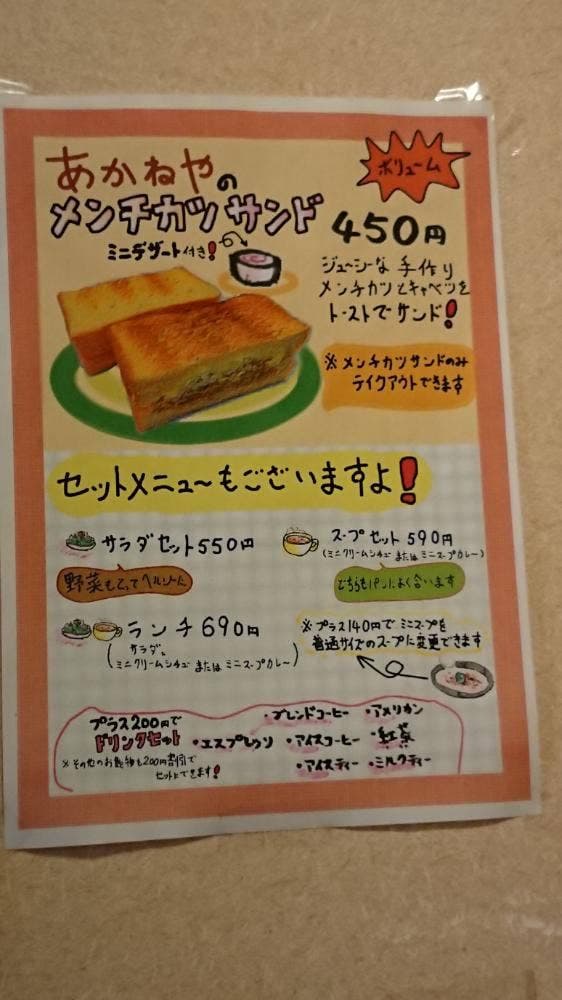 あかねやの
メンチカツサンド
ボリューム
450円
ミニデザート付き!
ジューシーな 手作り
メンチカツとキャベツを
トーストでサンド!
※メンチカツサンドのみ
テイクアウトできます
セットメニューもございますよ!
サラダセット550円
野菜もとってヘルシーに
スープセット 590円
(ミニクリームシチュー または ミニスープカレー)
どちらもパンによく合います
ランチ690円
(サラダ、
ミニクリームシチュー または ミニスープカレー)
※プラス140円で ミニスープを
普通サイズのスープに変更できます
プラス200円で
ドリンクセット
※その他のお飲物も200円割引で
セットにできます!
・ブレンドコーヒー ・アメリカン
・エスプレッソ ・アイスコーヒー ・紅茶
・アイスティー ・ミルクティー